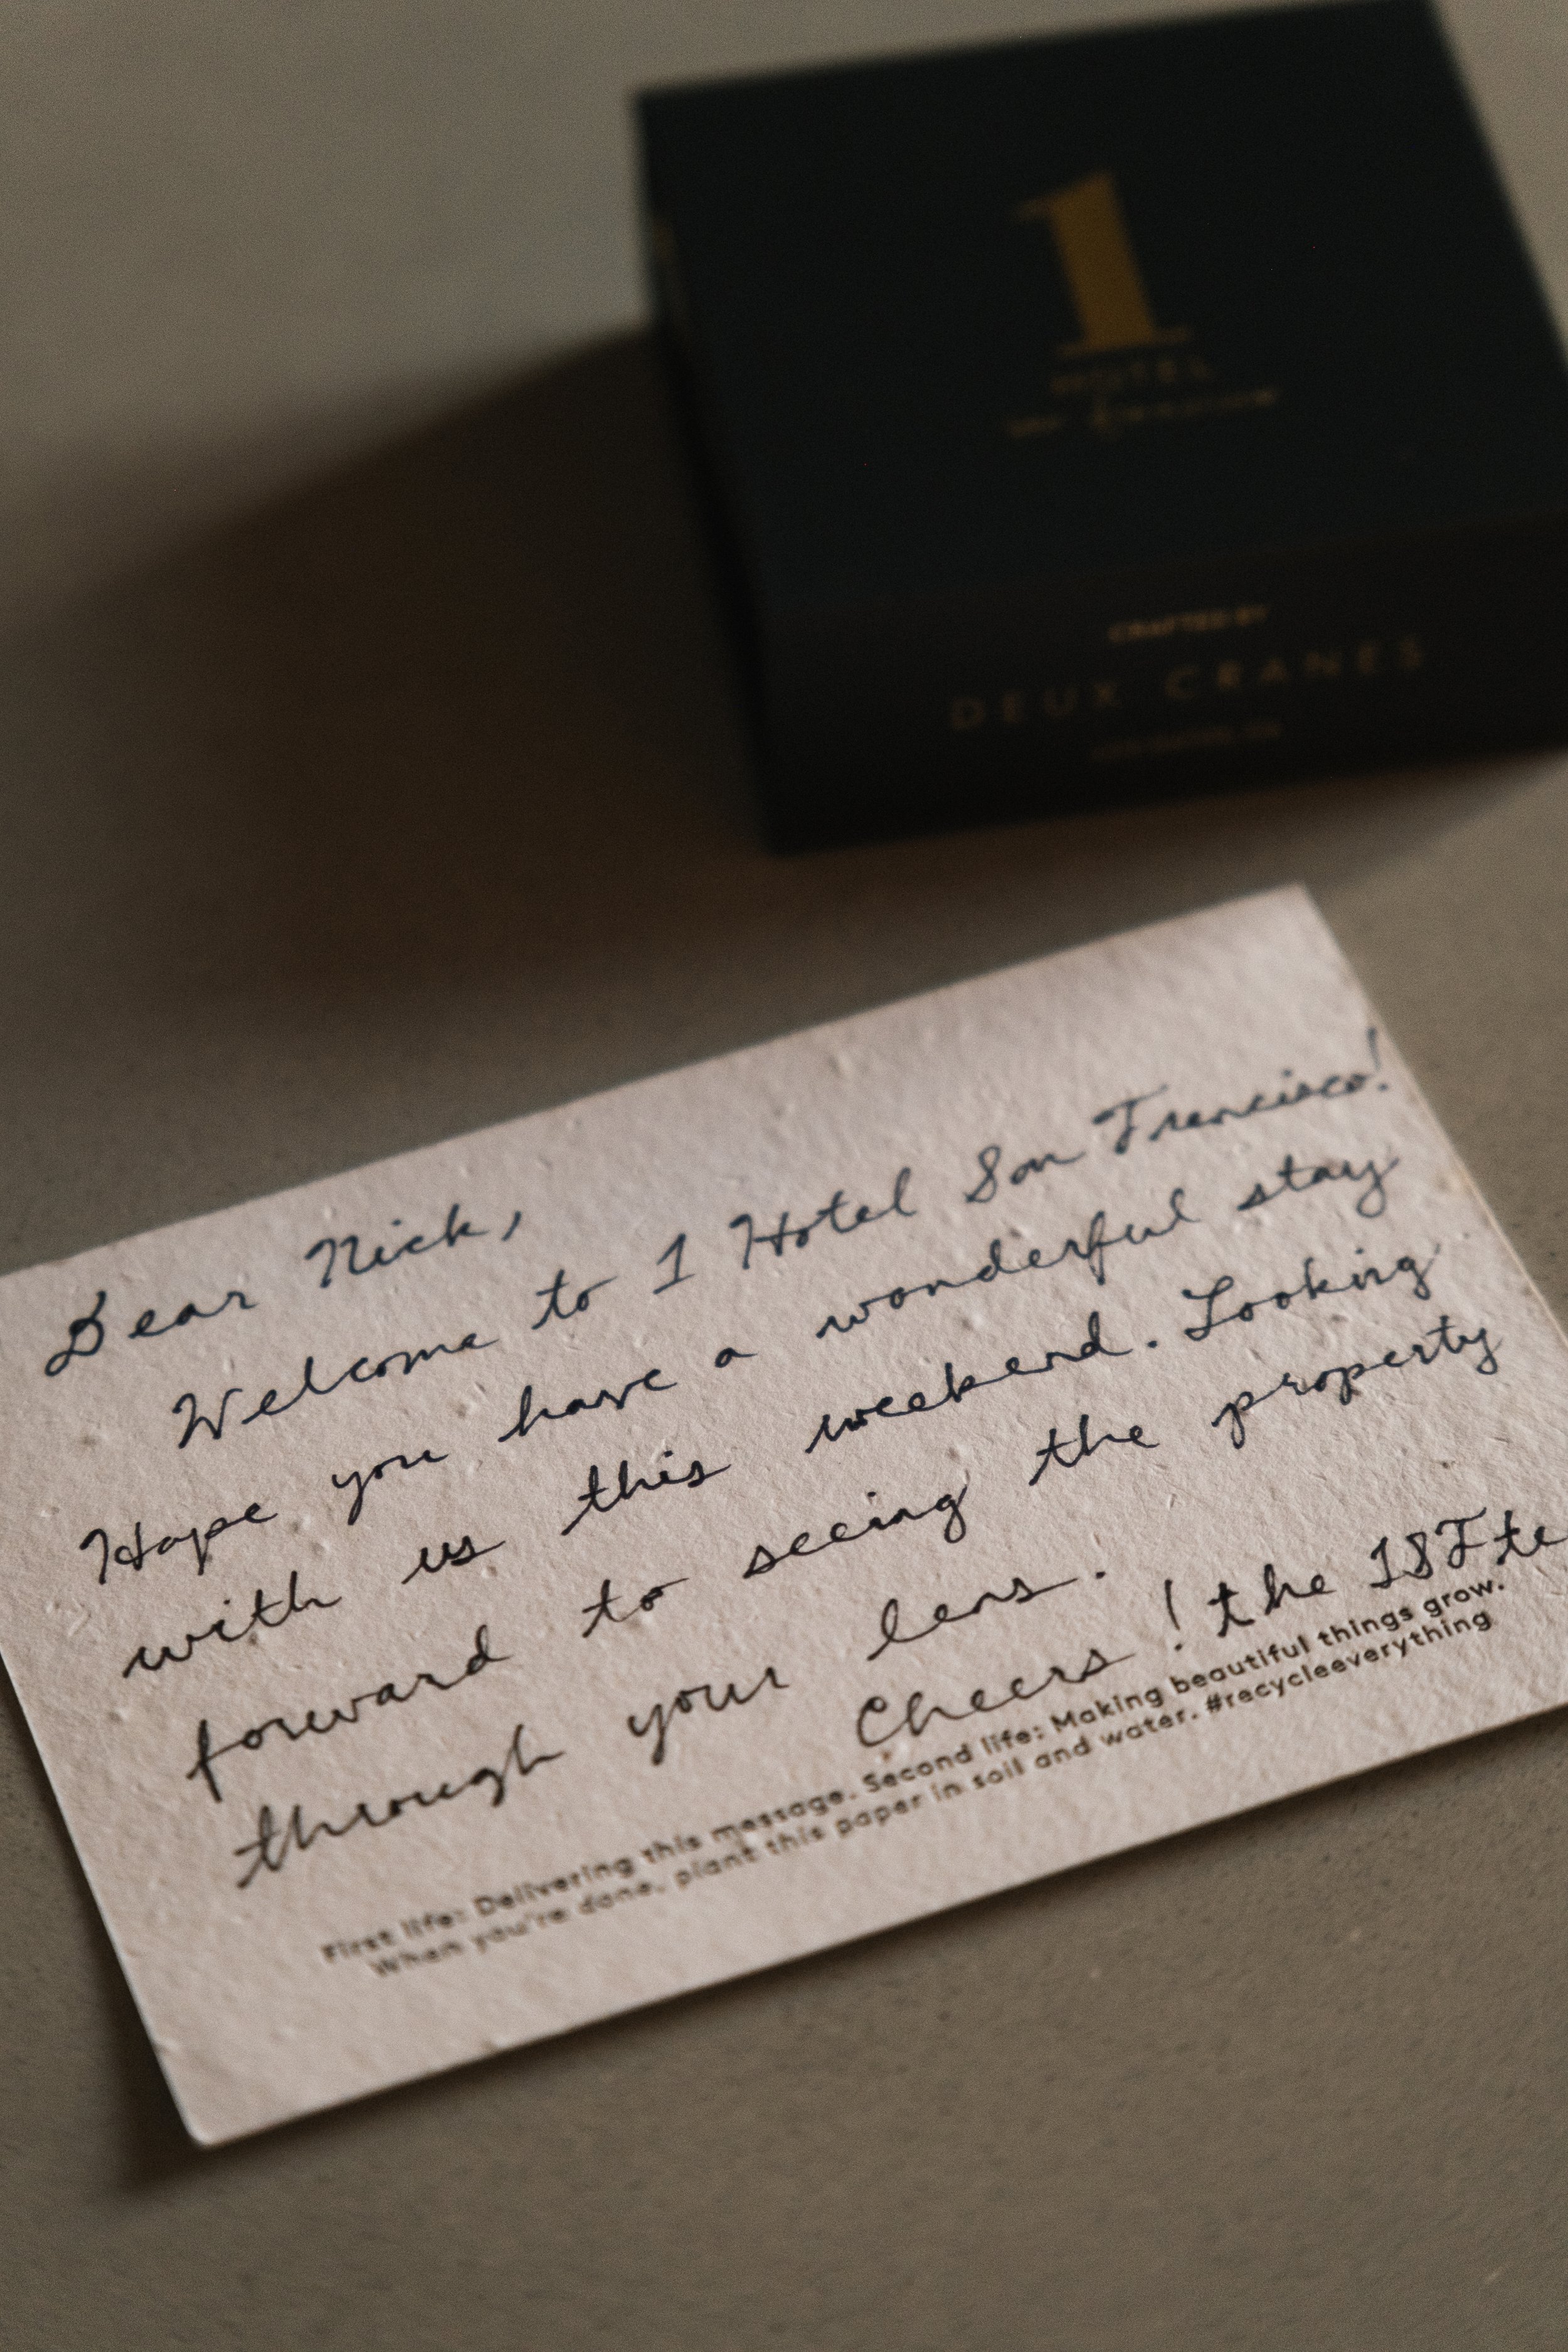 1
HOTEL
San Francisco
CRAFTED BY
DEUX CRANES
Dear Nick,
Welcome to 1 Hotel San Francisco!
Hope you have a wonderful stay
with us this weekend. Looking
forward to seeing the property
through your lens.
Cheers! the 1SF te
First life: Delivering this message. Second life: Making beautiful things grow.
When you're done, plant this paper in soil and water. #recycleeverything